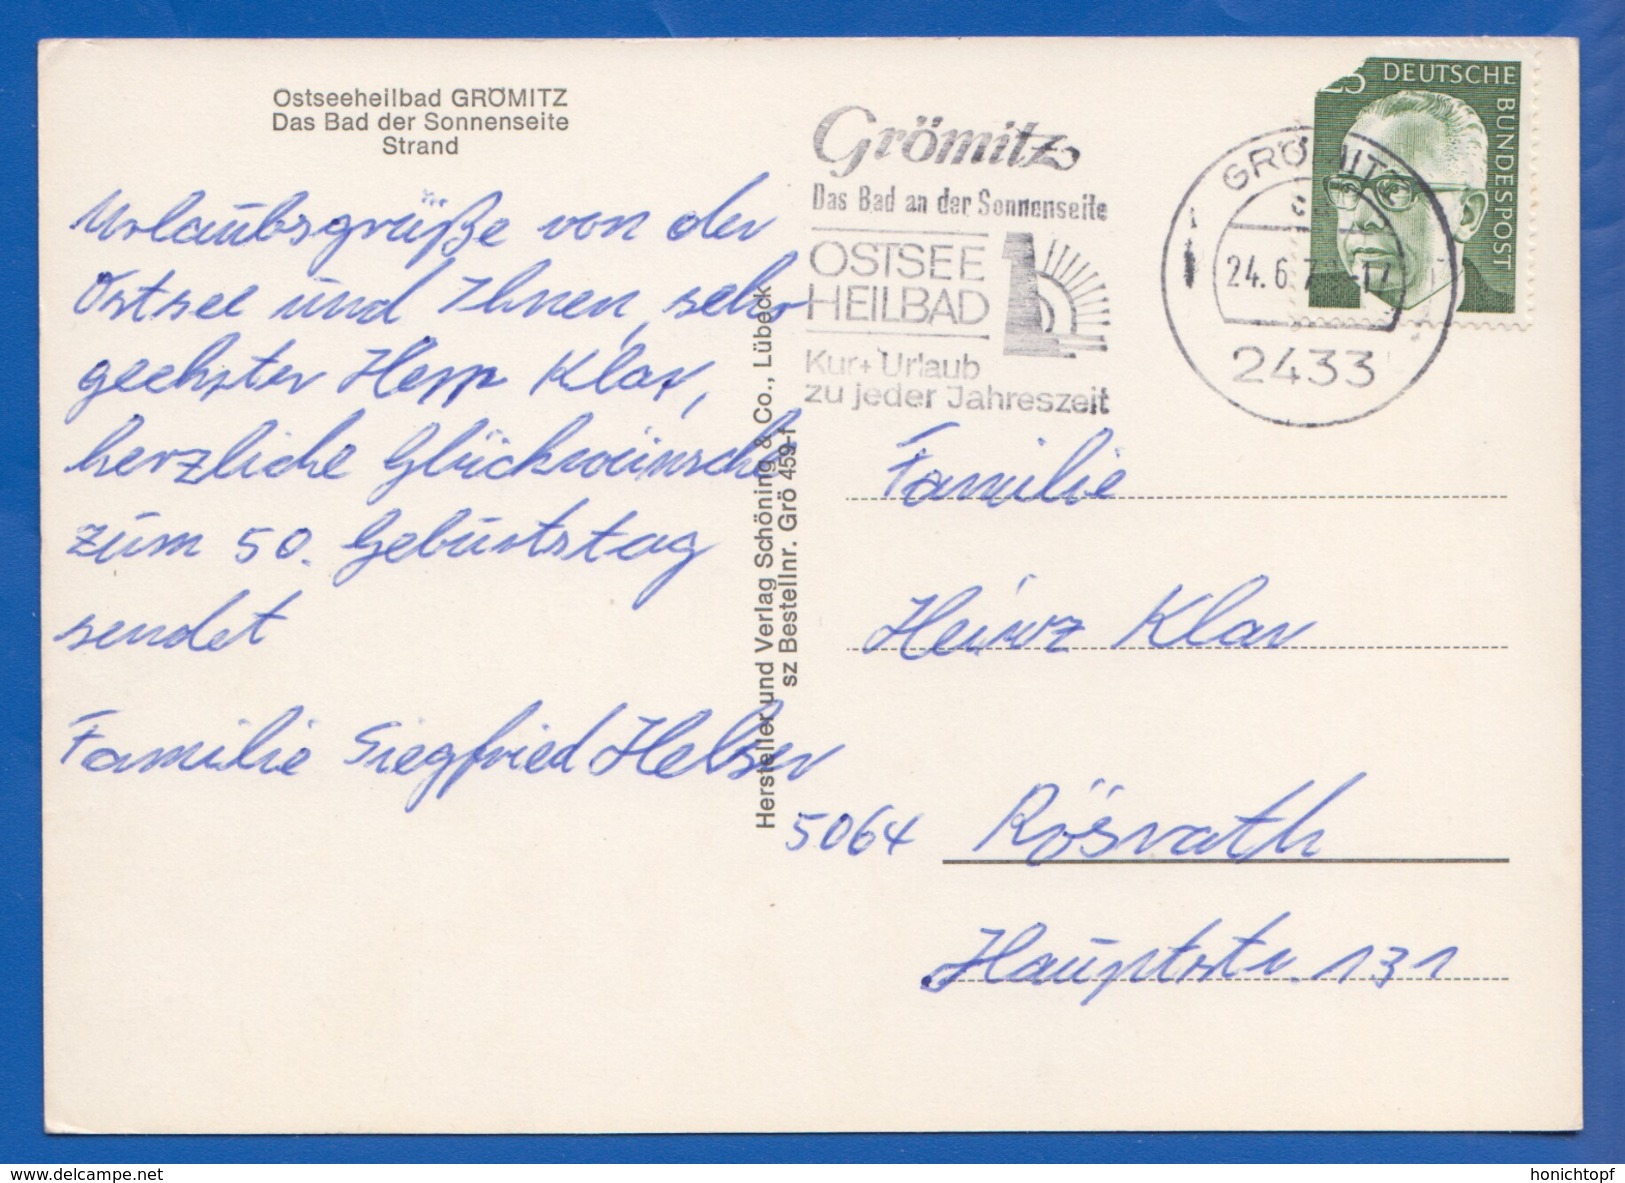 Ostseeheilbad GRÖMITZ
Das Bad der Sonnenseite
Strand
Urlaubsgrüße von der
Ostsee und Ihnen, sehr
geehrter Herr Klar,
herzliche Glückwünsche
zum 50. Geburtstag
sendet
Familie Siegfried Helser
Hersteller und Verlag Schöning & Co., Lübeck
sz Bestellnr. Grö 459-f
Grömitz
Das Bad an der Sonnenseite
OSTSEE
HEILBAD
Kur + Urlaub
zu jeder Jahreszeit
GRÖMITZ
24.6.7
-17
2433
25 DEUTSCHE
BUNDESPOST
Familie
Heinz Klar
5064 Rösrath
Hauptstr. 131
delcampe.net
honichtopf